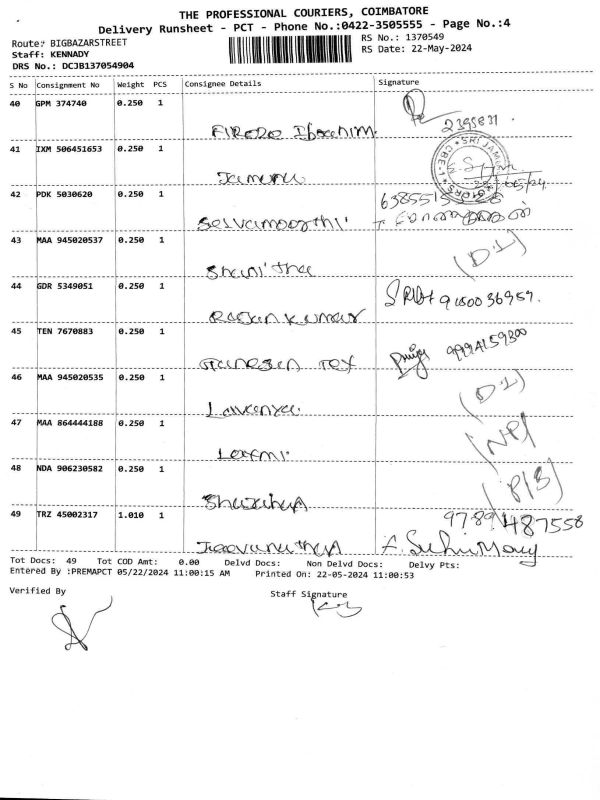 THE PROFESSIONAL COURIERS, COIMBATORE
Delivery Runsheet - PCT - Phone No.:0422-3505555 - Page No.:4
Route: BIGBAZARSTREET
RS No.: 1370549
Staff: KENNADY
RS Date: 22-May-2024
DRS No.: DCJB137054904
S No Consignment No Weight PCS Consignee Details Signature
40 GPM 374740 0.250 1
Firoze Ibrahim. 2395831
41 IXM 506451653 0.250 1
Jamuna
42 PDK 5030620 0.250 1
Selvamoorthi
43 MAA 945020537 0.250 1
(D.L)
44 GDR 5349051 0.250 1
Rajan Kumar
45 TEN 7670883 0.250 1
Ganesan Tex 9994159300
46 MAA 945020535 0.250 1
Lavanya (D.L)
47 MAA 864444188 0.250 1
Laxmi. (NP)
48 NDA 906230582 0.250 1
49 TRZ 45002317 1.010 1
9789487558
Tot Docs: 49 Tot COD Amt: 0.00 Delvd Docs: Non Delvd Docs: Delvy Pts:
Entered By :PREMAPCT 05/22/2024 11:00:15 AM Printed On: 22-05-2024 11:00:53
Verified By Staff Signature